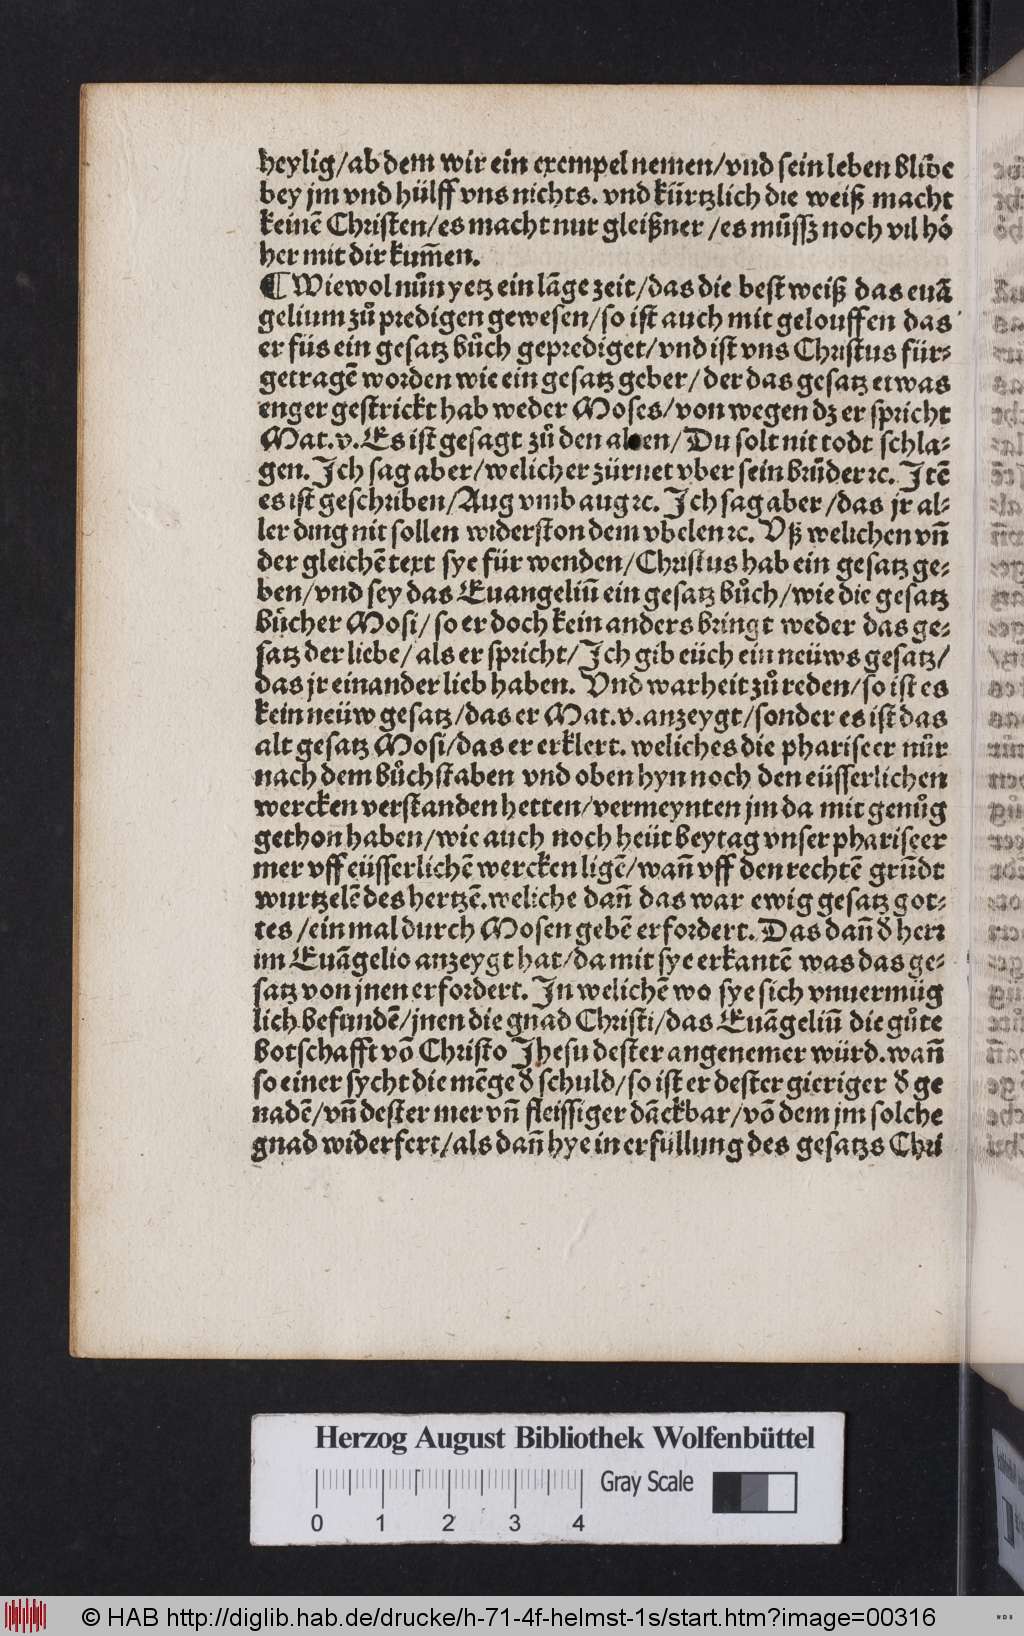 heylig/ab dem wir ein exempel nemen/vnd sein leben blibe
bey jm vnd hülff vns nichts. vnd kürtzlich die weiß macht
keinē Christen/es macht nur gleißner/es můssz noch vil hö
her mit dir kum̄en.
¶ Wiewol nůn yetz ein lāge zeit/das die best weiß das euā
gelium zů predigen gewesen/so ist auch mit gelouffen das
er füs ein gesatz bůch geprediget/vnd ist vns Christus für⸗
getragē worden wie ein gesatz geber/der das gesatz etwas
enger gestrickt hab weder Moses/von wegen dz er spricht
Mat.v. Es ist gesagt zů den alten/Du solt nit todt schla⸗
gen. Ich sag aber/welicher zürnet vber sein brůder ꝛc. Itē
es ist geschriben/Aug vmb aug ꝛc. Ich sag aber/das jr al⸗
ler ding nit sollen widerston dem vbelen ꝛc. Vß welichen vn̄
der gleichē text sye für wenden/Christus hab ein gesatz ge⸗
ben/vnd sey das Euangeliū ein gesatz bůch/wie die gesatz
bücher Mosi/so er doch kein anders bringt weder das ge⸗
satz der liebe/als er spricht/Ich gib eüch ein neüws gesatz/
das jr einander lieb haben. Vnd warheit zů reden/so ist es
kein neüw gesatz/das er Mat.v. anzeygt/sonder es ist das
alt gesatz Mosi/das er erklert. weliches die phariseer nůr
nach dem bůchstaben vnd oben hyn noch den eüsserlichen
wercken verstanden hetten/vermeynten jm da mit genůg
gethon haben/wie auch noch heüt beytag vnser phariseer
mer vff eüsserlichē wercken ligē/wan̄ vff den rechtē grůndt
wurtzelē des hertzē. weliche dan̄ das war ewig gesatz got⸗
tes/ein mal durch Mosen gebē erfordert. Das dan̄ ð herr
im Euāgelio anzeygt hat/da mit sye erkantē was das ge⸗
satz von jnen erfordert. In welichē wo sye sich vnuermüg
lich befundē/jnen die gnad Christi/das Euāgeliū die gůte
botschafft vō Christo Jhesu dester angenemer würd. wan̄
so einer sycht die mēge ð schuld/so ist er dester gieriger ð ge
nadē/vn̄ dester mer vn̄ fleissiger dāckbar/vō dem jm solche
gnad widerfert/als dan̄ hye in erfüllung des gesatzs Chri
Herzog August Bibliothek Wolfenbüttel
Gray Scale
0 1 2 3 4
© HAB http://diglib.hab.de/drucke/h-71-4f-helmst-1s/start.htm?image=00316